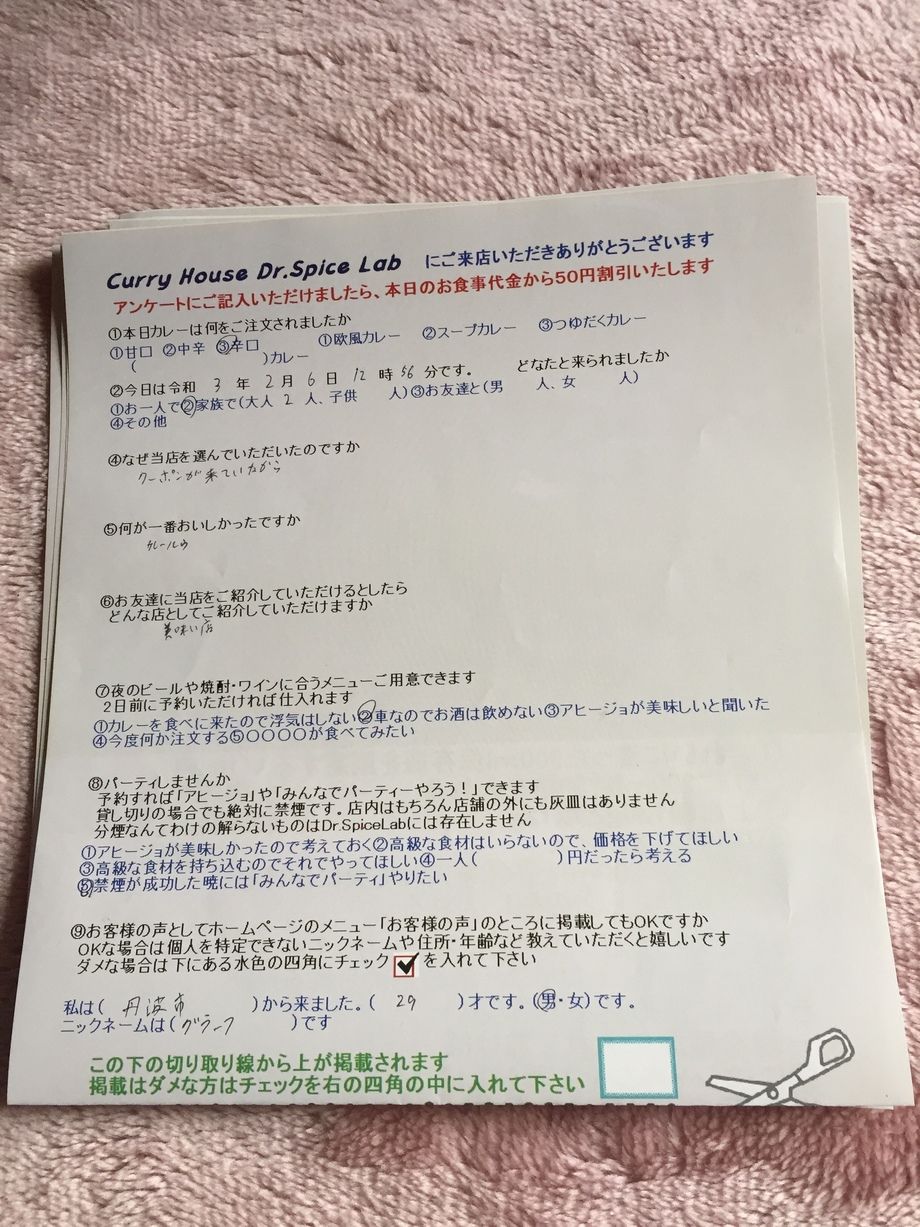 Curry House Dr.Spice Lab にご来店いただきありがとうございます
アンケートにご記入いただけましたら、本日のお食事代金から50円割引いたします
①本日カレーは何をご注文されましたか
①甘口 ②中辛 ③辛口 ①欧風カレー ②スープカレー ③つゆだくカレー
( )カレー
②今日は令和 3 年 2 月 6 日 12 時 56 分です。 どなたと来られましたか
①お一人で②家族で(大人 2 人、子供 人)③お友達と(男 人、女 人)
④その他
④なぜ当店を選んでいただいたのですか
クーポンが来ていたから
⑤何が一番おいしかったですか
カレールウ
⑥お友達に当店をご紹介していただけるとしたら
どんな店としてご紹介していただけますか
美味い店
⑦夜のビールや焼酎・ワインに合うメニューご用意できます
2日前に予約いただければ仕入れます
①カレーを食べに来たので浮気はしない②車なのでお酒は飲めない③アヒージョが美味しいと聞いた
④今度何か注文する⑤〇〇〇〇が食べてみたい
⑧パーティしませんか
予約すれば「アヒージョ」や「みんなでパーティーやろう！」できます
貸し切りの場合でも絶対に禁煙です。店内はもちろん店舗の外にも灰皿はありません
分煙なんてわけの解らないものはDr.SpiceLabには存在しません
①アヒージョが美味しかったので考えておく②高級な食材はいらないので、価格を下げてほしい
③高級な食材を持ち込むのでそれでやってほしい④一人( )円だったら考える
⑤禁煙が成功した暁には「みんなでパーティ」やりたい
⑨お客様の声としてホームページのメニュー「お客様の声」のところに掲載してもOKですか
OKな場合は個人を特定できないニックネームや住所・年齢など教えていただくと嬉しいです
ダメな場合は下にある水色の四角にチェック を入れて下さい
私は( 丹波市 )から来ました。( 29 )才です。(男・女)です。
ニックネームは( グラーフ )です
この下の切り取り線から上が掲載されます
掲載はダメな方はチェックを右の四角の中に入れて下さい